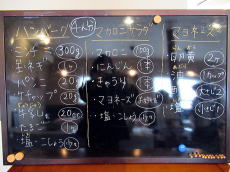 ハンバーグ 4人分
ミンチ 300g
玉ネギ 1ケ
パン粉 20g
ケチャップ 20g
牛乳 20g
たまご 1ケ
塩・こしょう 少々
マカロニサラダ
・マカロニ 100g
・にんじん 1本
・きゅうり 1本
・マヨネーズ
・塩・こしょう 少々
マヨネーズ
卵黄 2ケ
油 1カップ
酢 大さじ2
塩 小さじ1